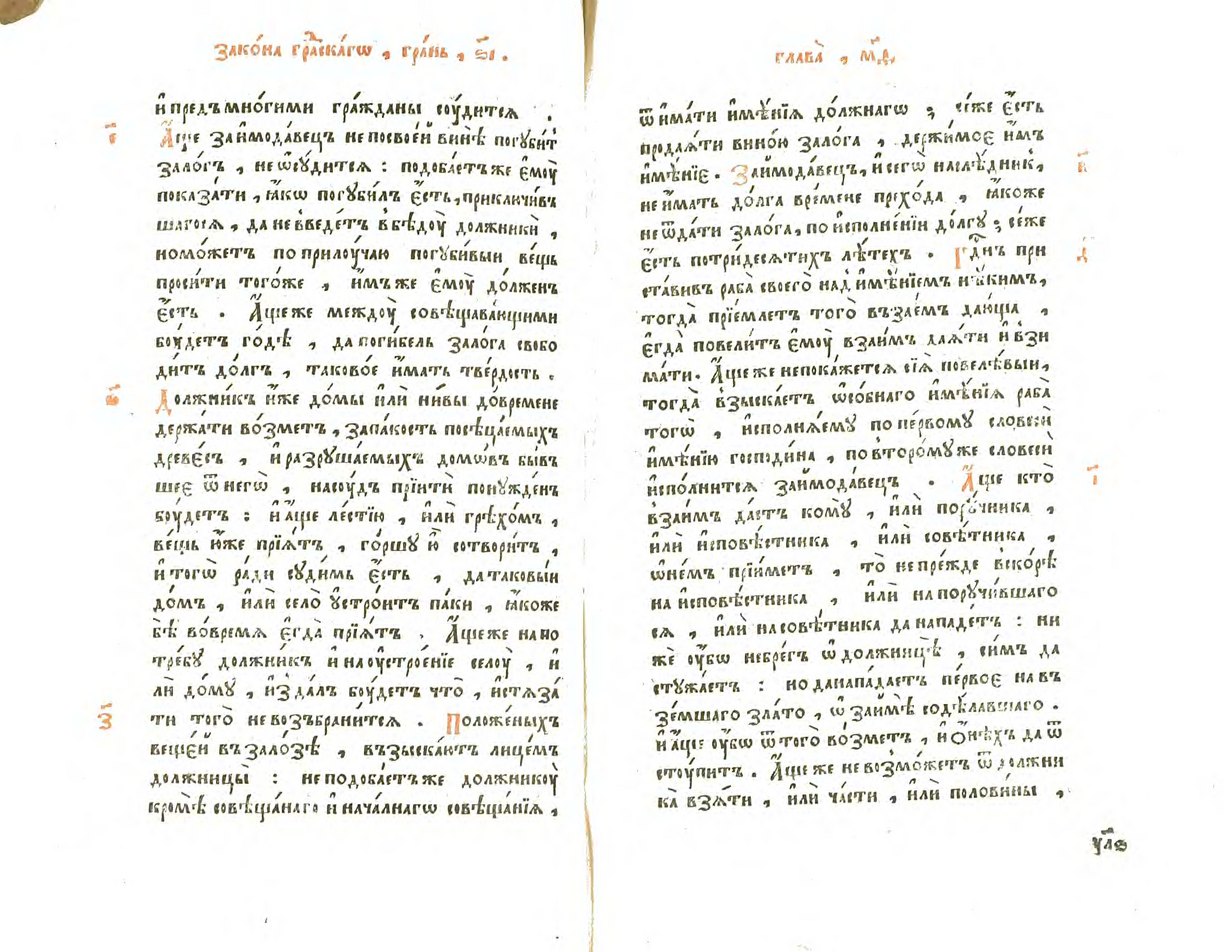 Зако́на гра́дскагѡ , гра́нь , ѕ҃і .
и҆ предъ мно́гими гра́жданы соу́дится .
є҃
А҆́ще заимода́вецъ не посвое́й винѣ̀ погуби́тъ
зало́гъ , не ѿсу́дится : подоба́етъ же є҆моу̀
показа́ти , ꙗ҆́кѡ погуби́лъ є҆́сть , приключи́в
шагося , да не введе́тъ в бѣдоу̀ должникѝ ,
но мо́жетъ по прилоу́чаю погуби́выи ве́щь
проси́ти того́же , и҆́мъ же є҆моу̀ до́лженъ
є҆́сть . А҆́ще же междоу̀ совѣщава́ющими
боу́детъ го́дѣ , да поги́бель зало́га свобо
ди́тъ до́лгъ , таково́е и҆́мать тве́рдость .
ѕ҃
Должни́къ и҆́же до́мы и҆лѝ ни́вы до́времене
держа́ти во́змет , за па́кость посѣца́емыхъ
древе́съ , и҆ разруша́емыхъ домо́въ бы́в
шеє ѿ негѡ̀ , на соу́дъ прїитѝ пону́жденъ
боу́детъ : и҆ а҆́ще ле́стїю , и҆лѝ грѣхо́мъ ,
ве́щь ю҆́же прїя́тъ , го́ршу ю҆̀ сотвори́тъ ,
и҆ тогѡ̀ ра́ди су́димь є҆́сть , да таковы́и
до́мъ , и҆лѝ село̀ ѹ҆стро́итъ па́ки , ꙗ҆́коже
бѣ̀ во́время є҆гда̀ прїя́тъ . А҆́ще же на по
тре́бу должни́къ и҆ на оу҆строе́нїе селоу̀ , и҆
лѝ до́му , и҆зда́лъ боу́детъ что̀ , и҆стяза́
ти того̀ не возъбрани́тся .
з҃
Положе́ныхъ
веще́й въ зало́зѣ , възы́скаютъ лице́мъ
должницы̀ : не подоба́етъ же должникоу̀
кромѣ̀ совѣща́наго и҆ нача́лнагѡ совѣща́нїя ,
глава̀ , м҃д.
ѿ и҆ма́ти и҆мѣ́нїя до́лжнагѡ ; се́же є҆́сть
прода́яти вино́ю зало́га , держи́моє и҆́мъ
и҆мѣ́нїе .
и҃
Заимода́вецъ , и҆ сегѡ̀ наслѣ́дник ,
не и҆́мать до́лга вре́мене прехо́да , ꙗ҆́коже
не ѿда́ти зало́га , по и҆сполне́нїи до́лгу ; се́же
є҆́сть потри́десятихъ лѣ́техъ .
ѳ҃
Гдⷭ҇нъ при
ста́вивъ раба̀ своего̀ над и҆мѣ́нїемъ нѣ́кимъ ,
тогда̀ прїе́млетъ того̀ въ зае́мъ даю́ща ,
є҆гда̀ повели́тъ є҆моу̀ в заи́мъ дая́ти и҆ взи
ма́ти . А҆́ще же не пока́жется сїя̀ повелѣ́выи ,
тогда̀ взы́скаетъ ѡ҆со́бнаго и҆мѣ́нїя раба̀
тогѡ̀ , и҆сполня́ему по пе́рвому словесѝ
и҆мѣ́нїю господи́на , по второ́му же словесѝ
и҆спо́лнится заимода́вецъ .
і҃
А҆́ще кто̀
в заи́мъ да́стъ комꙋ̀ , и҆лѝ пору́чника ,
и҆лѝ и҆сповѣ́стника , и҆лѝ совѣ́тника ,
ѡ҆ не́мъ прїи́метъ , то̀ не пре́жде вско́рѣ
на и҆сповѣ́стника , и҆лѝ на поручи́вшаго
ся , и҆лѝ на совѣ́тника да нападе́тъ : ни
жѐ оу҆́бѡ небре́гъ ѡ҆ должницѣ̀ , си́мъ да
стужа́етъ : но да напада́етъ пе́рвоє на въ
зе́мшаго зла́то , ѡ҆ заи́мѣ содѣ́лавшаго .
и҆ а҆́ще оу҆́бѡ ѿ того̀ во́зметъ , и҆ ѻ҆нѣ́хъ да ѿ
стоу́питъ . А҆́ще же не возмо́жетъ ѿ должни
ка̀ взя́ти , и҆лѝ ча́сти , и҆лѝ полови́ны ,